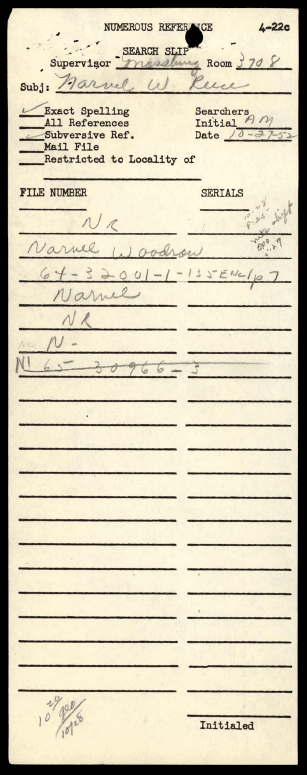 NUMEROUS REFERENCE 4-22c
SEARCH SLIP
Supervisor Room 3708
Subj: Narvel W. Reece
✓ Exact Spelling Searchers
All References Initial AM
✓ Subversive Ref. Date 10-27-52
Mail File
Restricted to Locality of
FILE NUMBER SERIALS
NR
Narvel Woodrow
64-32001-1-135 Encl p7
Narvel
NR
N-
NI 65-30966-3
10/28
Initialed